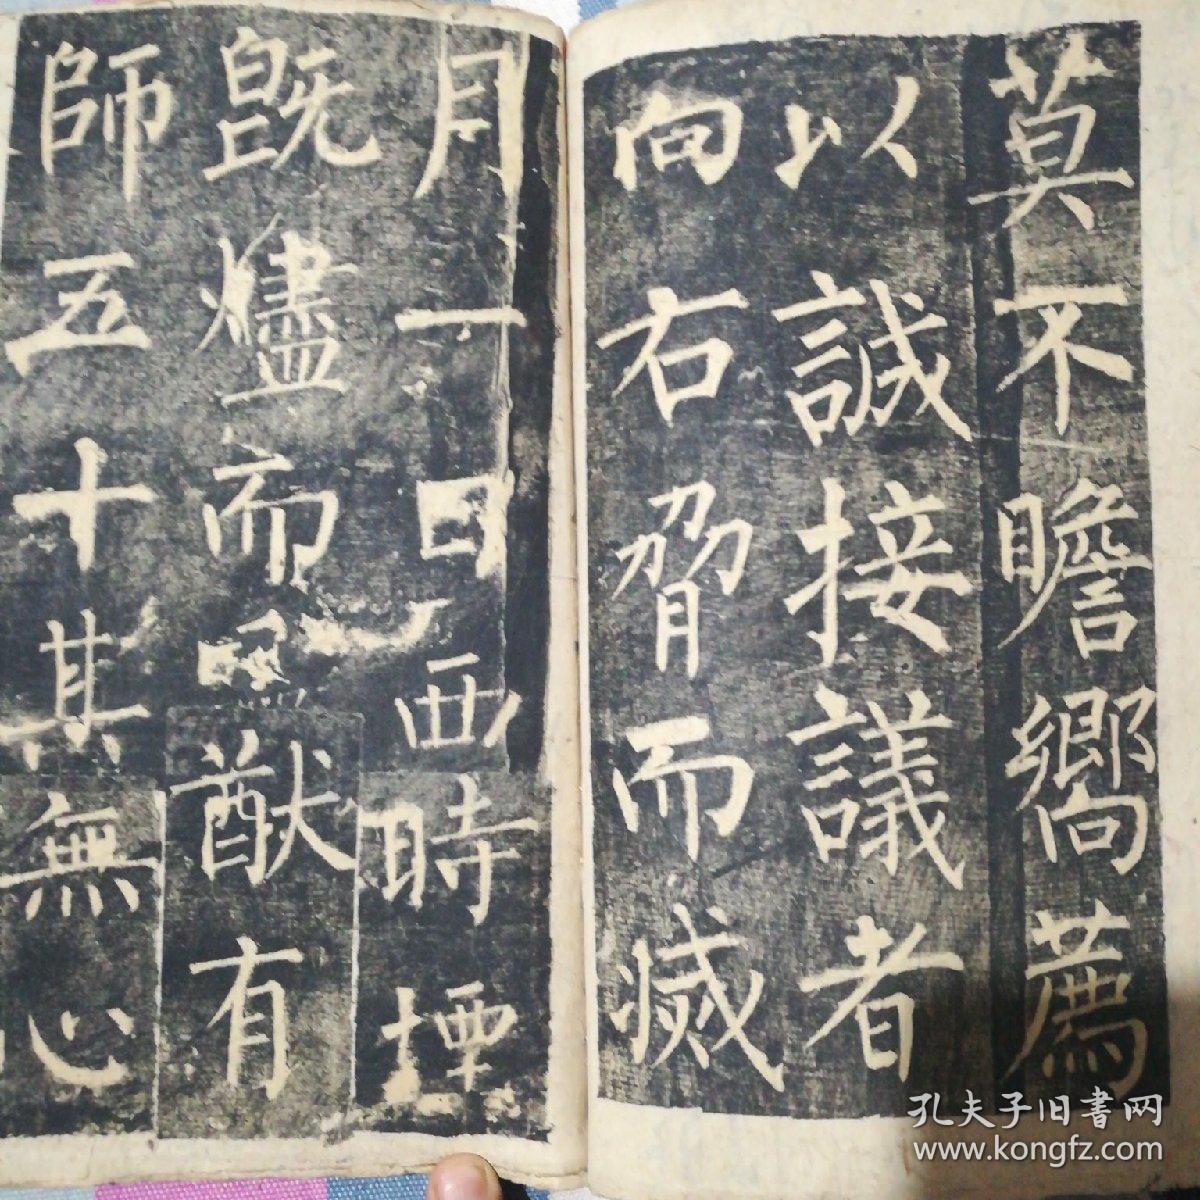 莫不瞻嚮薦
以誠接議者
向右脅而滅
月一日西時堙
既燼而
猷有
師五十其無心
孔夫子旧書网
www.kongfz.com